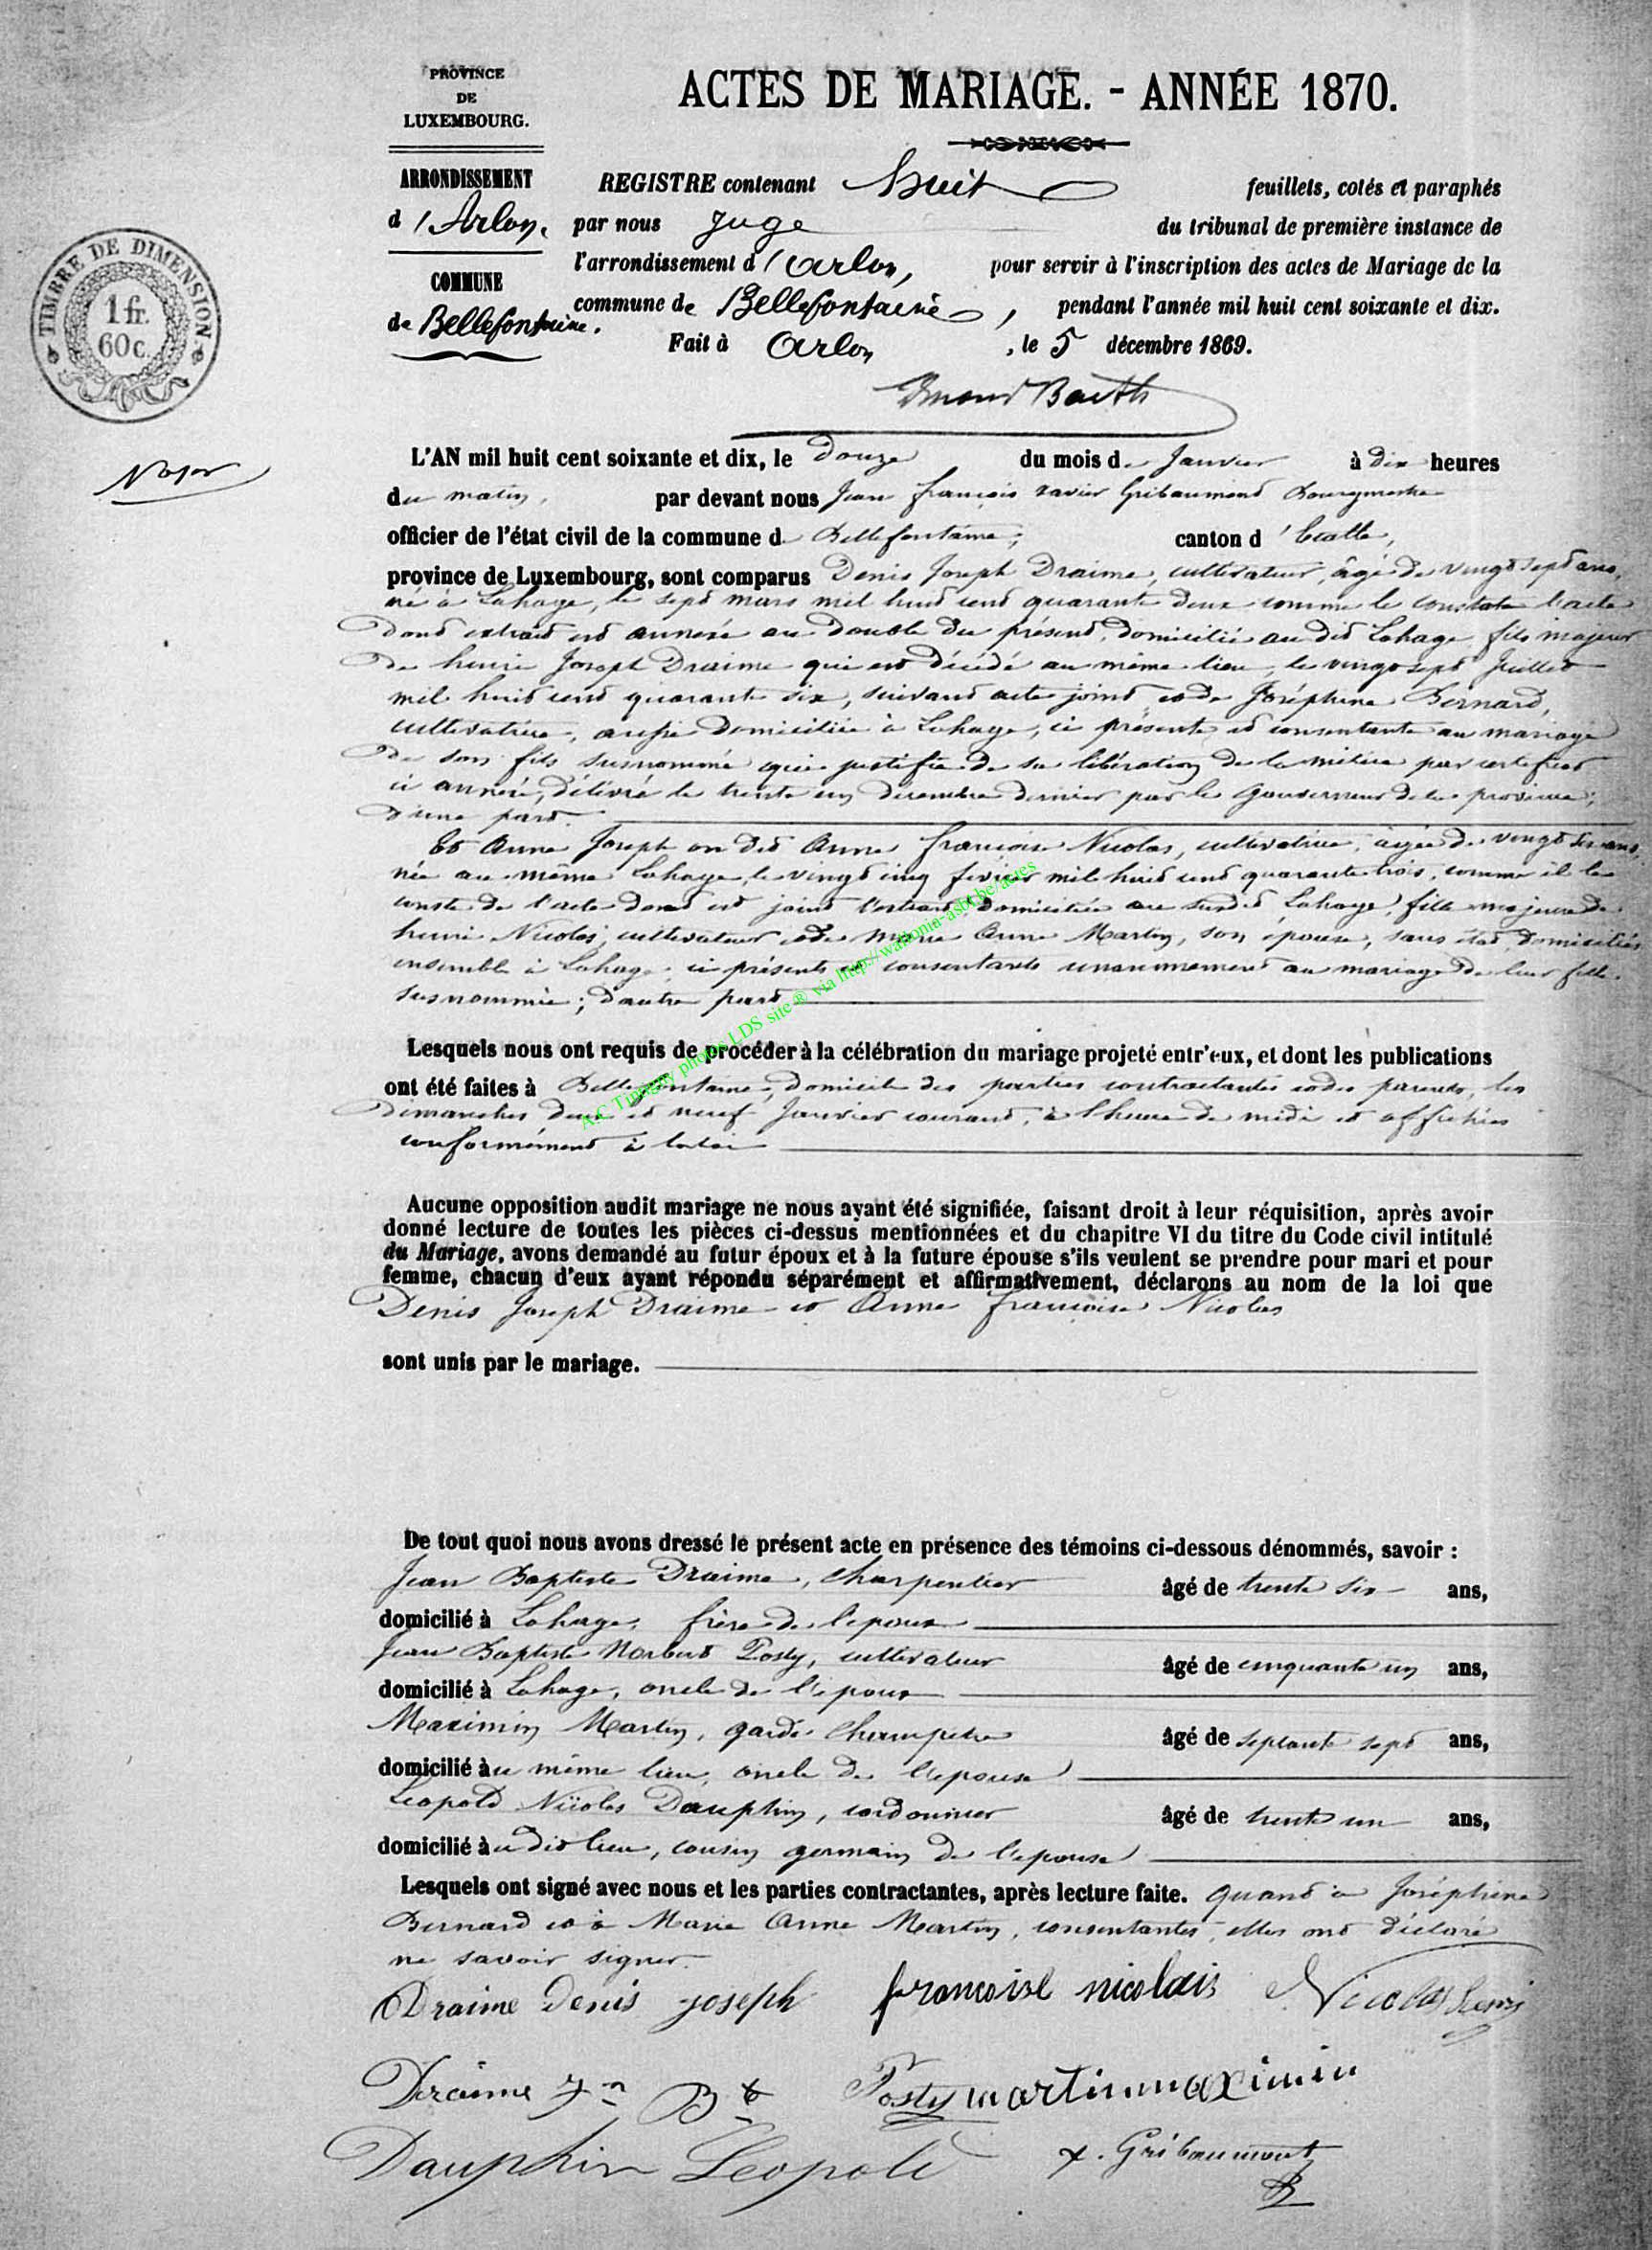 PROVINCE
DE
LUXEMBOURG.
ACTES DE MARIAGE. - ANNÉE 1870.
ARRONDISSEMENT
d'Arlon.
COMMUNE
de Bellefontaine.
TIMBRE DE DIMENSION
1 fr.
60 c.
REGISTRE contenant huit feuillets, cotés et paraphés
par nous Juge du tribunal de première instance de
l'arrondissement d'Arlon, pour servir à l'inscription des actes de Mariage de la
commune de Bellefontaine, pendant l'année mil huit cent soixante et dix.
Fait à Arlon, le 5 décembre 1869.
L'AN mil huit cent soixante et dix, le Douze du mois de Janvier à Dix heures
du matin, par devant nous Jean François Xavier Gribaumont Bourgmestre
officier de l'état civil de la commune de Bellefontaine, canton d'Etalle,
province de Luxembourg, sont comparus Denis Joseph Draime, cultivateur, âgé de vingt sept ans,
né à Lahage, le sept mars mil huit cent quarante deux comme le constate l'acte
dont extrait est annexé au double du présent, domicilié au dit Lahage, fils majeur
de henri Joseph Draime qui est décédé au même lieu, le vingt sept Juillet
mil huit cent quarante six, suivant acte joint, et de Joséphine Bernard,
cultivatrice, aussi domiciliée à Lahage, ci présente et consentante au mariage
de son fils susnommé qui justifie de sa libération de la milice par certificat
ci annexé, délivré le trente un décembre dernier par le Gouverneur de la province,
d'une part.
Et Anne Joseph on dit Anne françoise Nicolas, cultivatrice, âgée de vingt six ans,
née au même Lahage, le vingt cinq fevrier mil huit cent quarante trois, comme il le
conste de l'acte dont est joint l'extrait, domiciliée au susdit Lahage, fille majeure de
henri Nicolas, cultivateur et de Marie Anne Martin, son épouse, sans état, domiciliés
ensemble à Lahage, ci présents et consentants unanimement au mariage de leur fille
susnommée; d'autre part
Lesquels nous ont requis de procéder à la célébration du mariage projeté entr'eux, et dont les publications
ont été faites à Bellefontaine, domicile des parties contractantes et des parents, les
Dimanches deux et neuf Janvier courant, à l'heure de midi et affichées
conformément à la loi
Aucune opposition audit mariage ne nous ayant été signifiée, faisant droit à leur réquisition, après avoir
donné lecture de toutes les pièces ci-dessus mentionnées et du chapitre VI du titre du Code civil intitulé
du Mariage, avons demandé au futur époux et à la future épouse s'ils veulent se prendre pour mari et pour
femme, chacun d'eux ayant répondu séparément et affirmativement, déclarons au nom de la loi que
Denis Joseph Draime et Anne françoise Nicolas
sont unis par le mariage.
De tout quoi nous avons dressé le présent acte en présence des témoins ci-dessous dénommés, savoir :
Jean Baptiste Draime, charpentier âgé de trente six ans,
domicilié à Lahage, frère de l'époux
Jean Baptiste Norbert Posty, cultivateur âgé de cinquante un ans,
domicilié à Lahage, oncle de l'époux
Maximin Martin, garde champêtre âgé de septante sept ans,
domicilié au même lieu, oncle de l'épouse
Leopold Nicolas Dauphin, cordonnier âgé de trente un ans,
domicilié au dit lieu, cousin germain de l'épouse
Lesquels ont signé avec nous et les parties contractantes, après lecture faite. Quant à Joséphine
Bernard et à Marie Anne Martin, consentantes, elles ont déclaré
ne savoir signer.
Draime Denis joseph francoise nicolais Nicolas Henri
Draime Jn Bte Posty martin maximin
Dauphin Léopold x. Gribaumont
A.C. Timigny photos LDS site ® via http://wallonia-asbl.be/actes